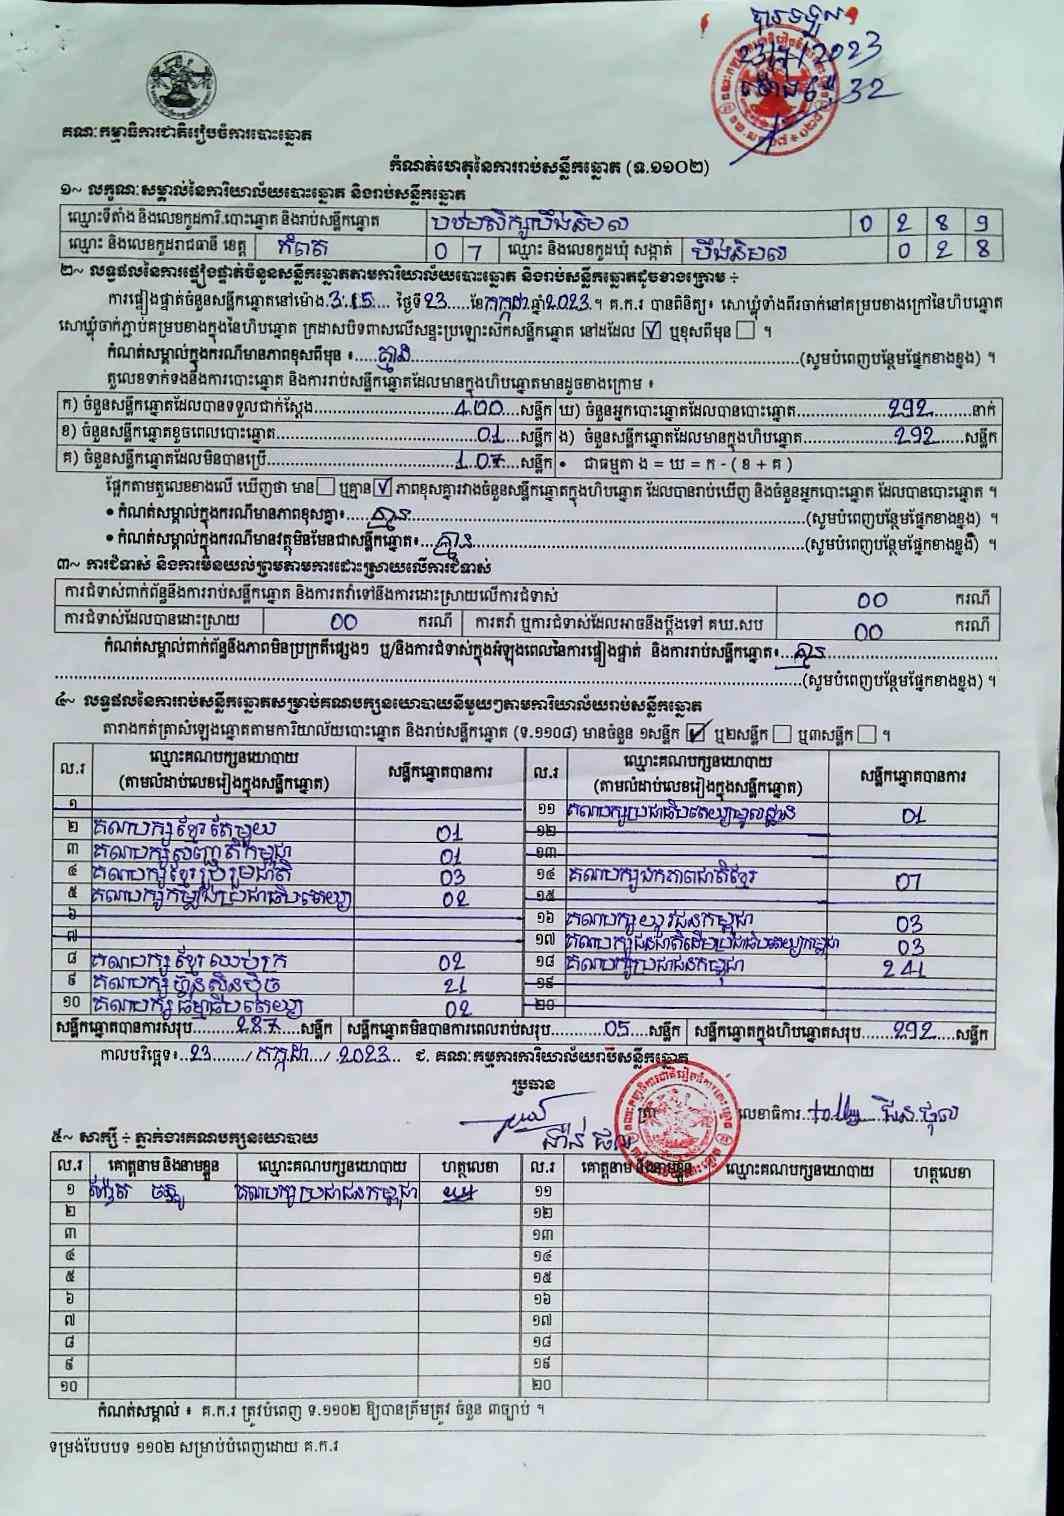 23/7/2023
គណៈកម្មាធិការជាតិរៀបចំការបោះឆ្នោត
កំណត់ហេតុនៃការរាប់សន្លឹកឆ្នោត (ទ.១១០២)
១~ លក្ខណៈសម្គាល់នៃការិយាល័យបោះឆ្នោត និងរាប់សន្លឹកឆ្នោត
ឈ្មោះទីតាំង និងលេខកូដការិ.បោះឆ្នោត និងរាប់សន្លឹកឆ្នោត បឋមសិក្សាបឹងនិមល 0 2 8 9
ឈ្មោះ និងលេខកូដរាជធានី ខេត្ត កំពត 0 7 ឈ្មោះ និងលេខកូដឃុំ សង្កាត់ បឹងនិមល 0 2 8
២~ លទ្ធផលនៃការផ្ទៀងផ្ទាត់ចំនួនសន្លឹកឆ្នោតតាមការិយាល័យបោះឆ្នោត និងរាប់សន្លឹកឆ្នោតដូចខាងក្រោម ÷
ការផ្ទៀងផ្ទាត់ចំនួនសន្លឹកឆ្នោតនៅម៉ោង 3:15 ថ្ងៃទី 23 ខែ កក្កដា ឆ្នាំ 2023 ។ គ.ក.រ បានពិនិត្យ៖ សោឃ្លុំទាំងពីរចាក់នៅគម្របខាងក្រៅនៃហិបឆ្នោត
សោឃ្លុំចាក់ភ្ជាប់គម្របខាងក្នុងនៃហិបឆ្នោត ក្រដាសបិទពាសលើសន្ទះប្រឡោះស៊កសន្លឹកឆ្នោត នៅដដែល ☑ ឬខុសពីមុន ☐ ។
កំណត់សម្គាល់ក្នុងករណីមានភាពខុសពីមុន ៖ គ្មាន (សូមបំពេញបន្ថែមផ្នែកខាងខ្នង) ។
តួលេខទាក់ទងនឹងការបោះឆ្នោត និងការរាប់សន្លឹកឆ្នោតដែលមានក្នុងហិបឆ្នោតមានដូចខាងក្រោម ៖
ក) ចំនួនសន្លឹកឆ្នោតដែលបានទទួលជាក់ស្តែង 400 សន្លឹក ឃ) ចំនួនអ្នកបោះឆ្នោតដែលបានបោះឆ្នោត 292 នាក់
ខ) ចំនួនសន្លឹកឆ្នោតខូចពេលបោះឆ្នោត 01 សន្លឹក ង) ចំនួនសន្លឹកឆ្នោតដែលមានក្នុងហិបឆ្នោត 292 សន្លឹក
គ) ចំនួនសន្លឹកឆ្នោតដែលមិនបានប្រើ 107 សន្លឹក • ជាធម្មតា ង = ឃ = ក - ( ខ + គ )
ផ្អែកតាមតួលេខខាងលើ ឃើញថា មាន ☐ ឬគ្មាន ☑ ភាពខុសគ្នារវាងចំនួនសន្លឹកឆ្នោតក្នុងហិបឆ្នោត ដែលបានរាប់ឃើញ និងចំនួនអ្នកបោះឆ្នោត ដែលបានបោះឆ្នោត ។
• កំណត់សម្គាល់ក្នុងករណីមានភាពខុសគ្នា៖ គ្មាន (សូមបំពេញបន្ថែមផ្នែកខាងខ្នង) ។
• កំណត់សម្គាល់ក្នុងករណីមានវត្ថុមិនមែនជាសន្លឹកឆ្នោត៖ គ្មាន (សូមបំពេញបន្ថែមផ្នែកខាងខ្នង) ។
៣~ ការជំទាស់ និងការមិនយល់ព្រមតាមការដោះស្រាយលើការជំទាស់
ការជំទាស់ពាក់ព័ន្ធនឹងការរាប់សន្លឹកឆ្នោត និងការតវ៉ាទៅនឹងការដោះស្រាយលើការជំទាស់ 00 ករណី
ការជំទាស់ដែលបានដោះស្រាយ 00 ករណី ការតវ៉ា ឬការជំទាស់ដែលអាចនឹងប្តឹងទៅ គឃ.សប 00 ករណី
កំណត់សម្គាល់ពាក់ព័ន្ធនឹងភាពមិនប្រក្រតីផ្សេងៗ ឬ/និងការជំទាស់ក្នុងអំឡុងពេលនៃការផ្ទៀងផ្ទាត់ និងការរាប់សន្លឹកឆ្នោត៖ គ្មាន
(សូមបំពេញបន្ថែមផ្នែកខាងខ្នង) ។
៤~ លទ្ធផលនៃការរាប់សន្លឹកឆ្នោតសម្រាប់គណបក្សនយោបាយនីមួយៗតាមការិយាល័យរាប់សន្លឹកឆ្នោត
តារាងកត់ត្រាសំឡេងឆ្នោតតាមការិយាល័យបោះឆ្នោត និងរាប់សន្លឹកឆ្នោត (ទ.១១០៨) មានចំនួន ១សន្លឹក ☑ ឬ២សន្លឹក ☐ ឬ៣សន្លឹក ☐ ។
ល.រ ឈ្មោះគណបក្សនយោបាយ (តាមលំដាប់លេខរៀងក្នុងសន្លឹកឆ្នោត) សន្លឹកឆ្នោតបានការ ល.រ ឈ្មោះគណបក្សនយោបាយ (តាមលំដាប់លេខរៀងក្នុងសន្លឹកឆ្នោត) សន្លឹកឆ្នោតបានការ
១ ១១ គណបក្សប្រជាធិបតេយ្យមូលដ្ឋាន 01
២ គណបក្សខ្មែរតែមួយ 01 ១២
៣ គណបក្សសញ្ជាតិកម្ពុជា 01 ១៣
៤ គណបក្សខ្មែររួបរួមជាតិ 03 ១៤ គណបក្សឯកភាពជាតិខ្មែរ 07
៥ គណបក្សកម្លាំងប្រជាធិបតេយ្យ 02 ១៥
៦ ១៦ គណបក្សយុវជនកម្ពុជា 03
៧ ១៧ គណបក្សជនជាតិដើមប្រជាធិបតេយ្យកម្ពុជា 03
៨ គណបក្សខ្មែរឈប់ក្រ 02 ១៨ គណបក្សប្រជាជនកម្ពុជា 241
៩ គណបក្សហ៊្វុនស៊ិនប៉ិច 21 ១៩
១០ គណបក្សធម្មាធិបតេយ្យ 02 ២០
សន្លឹកឆ្នោតបានការសរុប 287 សន្លឹក សន្លឹកឆ្នោតមិនបានការពេលរាប់សរុប 05 សន្លឹក សន្លឹកឆ្នោតក្នុងហិបឆ្នោតសរុប 292 សន្លឹក
កាលបរិច្ឆេទ៖ 23 / កក្កដា / 2023 ជ. គណៈកម្មការការិយាល័យរាប់សន្លឹកឆ្នោត
ប្រធាន
ត្រា លេខាធិការ
៥~ សាក្សី ÷ ភ្នាក់ងារគណបក្សនយោបាយ
ល.រ គោត្តនាម និងនាមខ្លួន ឈ្មោះគណបក្សនយោបាយ ហត្ថលេខា ល.រ គោត្តនាម និងនាមខ្លួន ឈ្មោះគណបក្សនយោបាយ ហត្ថលេខា
១ គណបក្សប្រជាជនកម្ពុជា ១១
២ ១២
៣ ១៣
៤ ១៤
៥ ១៥
៦ ១៦
៧ ១៧
៨ ១៨
៩ ១៩
១០ ២០
កំណត់សម្គាល់ ៖ គ.ក.រ ត្រូវបំពេញ ទ.១១០២ ឱ្យបានត្រឹមត្រូវ ចំនួន ៣ច្បាប់ ។
ទម្រង់បែបបទ ១១០២ សម្រាប់បំពេញដោយ គ.ក.រ